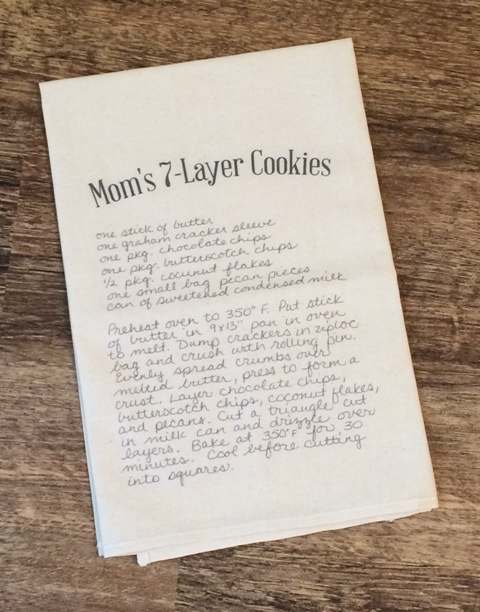 Mom's 7-Layer Cookies
one stick of butter
one graham cracker sleeve
one pkg. chocolate chips
one pkg. butterscotch chips
1/2 pkg. coconut flakes
one small bag pecan pieces
can of sweetened condensed milk
Preheat oven to 350° F. Put stick
of butter in 9x13" pan in oven
to melt. Dump crackers in ziploc
bag and crush with rolling pin.
Evenly spread crumbs over
melted butter, press to form a
crust. Layer chocolate chips,
butterscotch chips, coconut flakes,
and pecans. Cut a triangle cut
in milk can and drizzle over
layers. Bake at 350°F for 30
minutes. Cool before cutting
into squares.